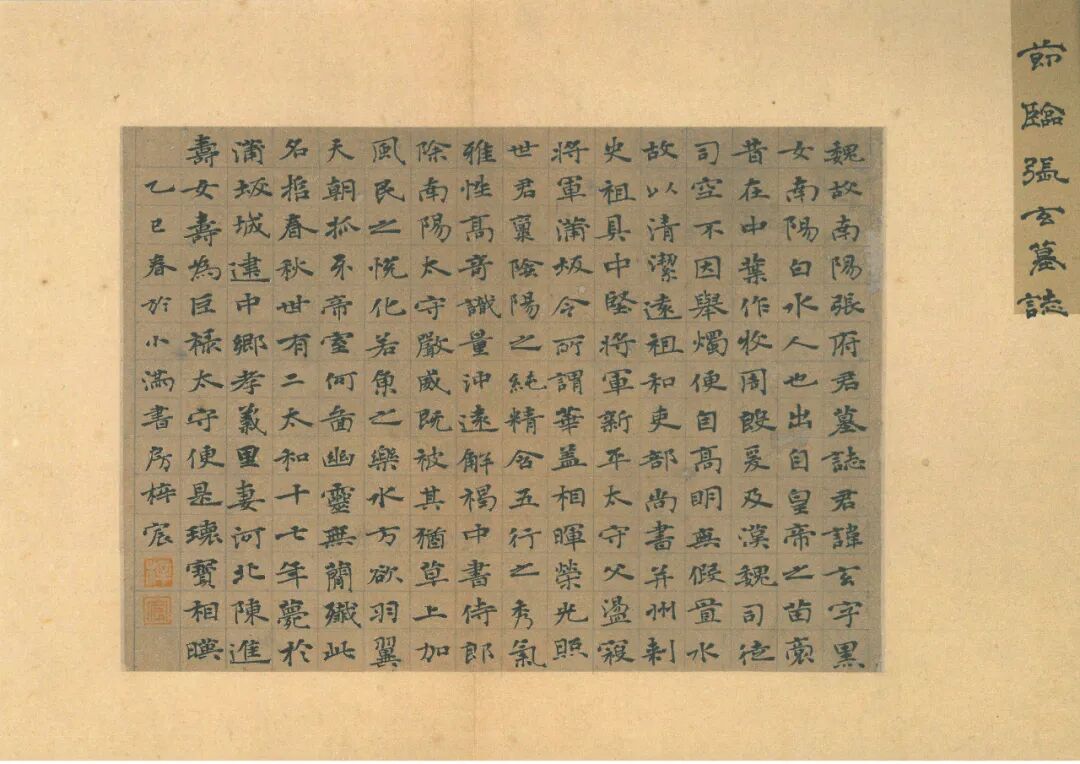 節臨張玄墓誌
魏故南陽張府君墓誌君諱玄字黑
女南陽白水人也出自皇帝之苗裔
昔在中葉作牧周殷爰及漢魏司徒
司空不因舉燭便自高明無假置水
故以清潔遠祖和吏部尚書并州刺
史祖具中堅將軍新平太守父盪寇
將軍蒲坂令所謂華蓋相暉榮光照
世君稟陰陽之純精含五行之秀氣
雅性高奇識量沖遠解褐中書侍郎
除南陽太守嚴威既被其猶草上加
風民之悅化若魚之樂水方欲羽翼
天朝抓牙帝室何啚幽靈無簡殲此
名哲春秋卅有二太和十七年薨於
蒲坂城建中鄉孝義里妻河北陳進
壽女壽為巨祿太守便是瓌寶相暎
乙巳春於小滿書房梓宸